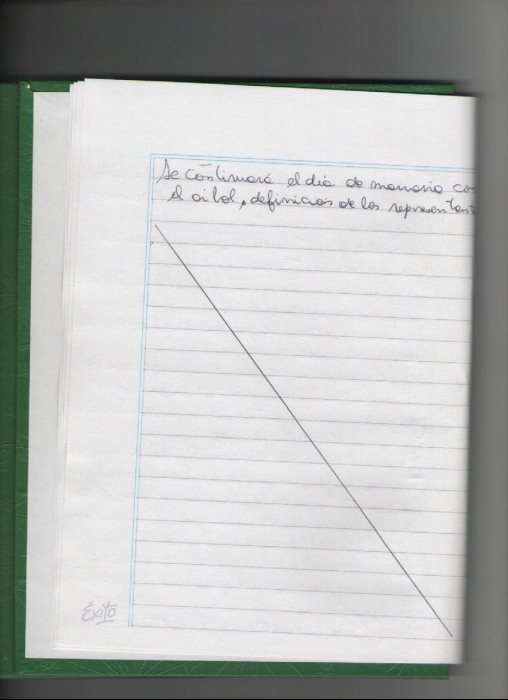 Se continuará el día de manana co
el arbol, definicion de los represent
Éxito